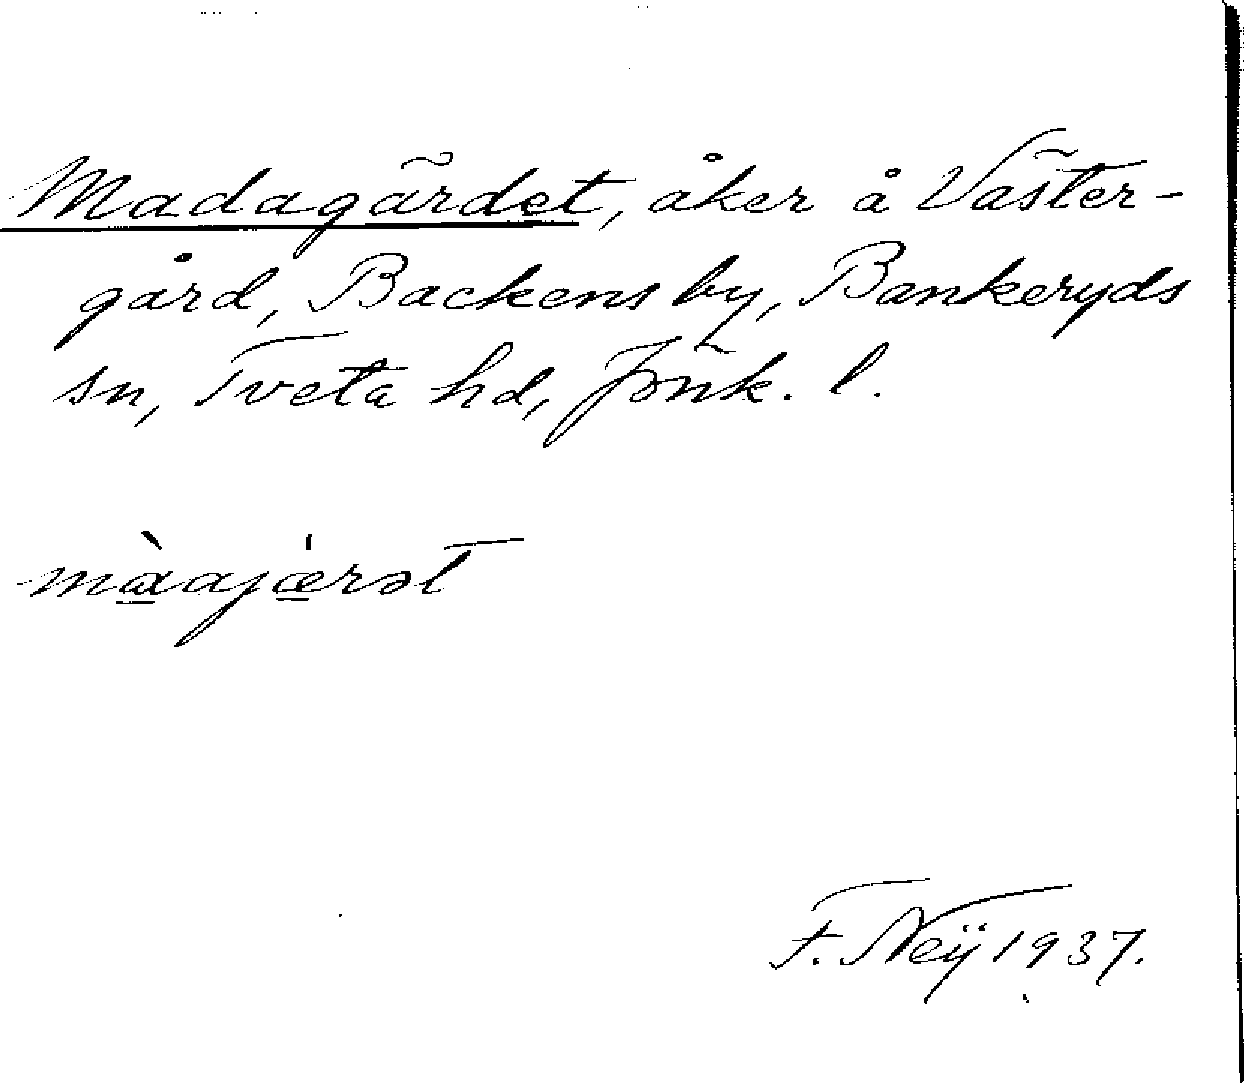 Madagärdet, åker å Väster-
gård, Backens by, Bankeryds
sn, Tveta hd, Jönk. l.
màajǽrət
F. Neÿ 1937.